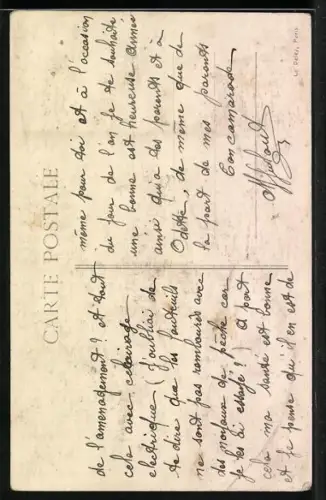 CARTE POSTALE
de l'aménagement? et tout
cela avec éclairage
électrique (j'oubliai de
te dire que les fauteuils
ne sont pas rembourrés avec
des noyaux de pêche car
je les ai essayé?) à part
cela ma santé est bonne
et je pense qu'il en est de
même pour toi et à l'occasion
du jour de l'an je te souhaite
une bonne est heureuse année
ainsi qu'à tes parents et à
Odette, de même que de
la part de mes parents
Ton camarade